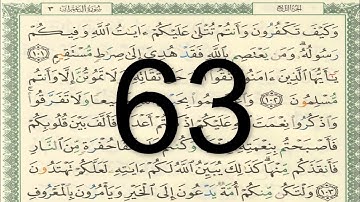 سُورَةُ آلِ عِمْرَانَ ٣
الجزء الرابع
وَكَيْفَ تَكْفُرُونَ وَأَنتُمْ تُتْلَىٰ عَلَيْكُمْ ءَايَٰتُ ٱللَّهِ وَفِيكُمْ
رَسُولُهُۥ وَمَن يَعْتَصِم بِٱللَّهِ فَقَدْ هُدِىَ إِلَىٰ صِرَٰطٍ مُّسْتَقِيمٍ ١٠١
يَٰٓأَيُّهَا ٱلَّذِينَ ءَامَنُوا۟ ٱتَّقُوا۟ تُقَاتِهِۦ وَلَا تَمُوتُنَّ إِلَّا وَأَنتُم
مُّسْلِمُونَ ١٠٢ وَٱعْتَصِمُوا۟ بِحَبْلِ جَمِيعًا وَلَا تَفَرَّقُوا۟
وَٱذْكُرُوا۟ نِعْمَتَ عَلَيْكُمْ إِذْ كُنتُمْ أَعْدَآءً فَأَلَّفَ بَيْنَ قُلُوبِكُمْ
فَأَصْبَحْتُم بِنِعْمَتِهِۦٓ وَكُنتُمْ عَلَىٰ شَفَا حُفْرَةٍ مِّنَ ٱلنَّارِ
فَأَنقَذَكُم مِّنْهَا كَذَٰلِكَ يُبَيِّنُ ٱللَّهُ لَكُمْ ءَايَٰتِهِۦ لَعَلَّكُمْ تَهْتَدُونَ ١٠٣
وَلْتَكُن مِّنكُمْ أُمَّةٌ يَدْعُونَ إِلَى ٱلْخَيْرِ وَيَأْمُرُونَ بِٱلْمَعْرُوفِ
63